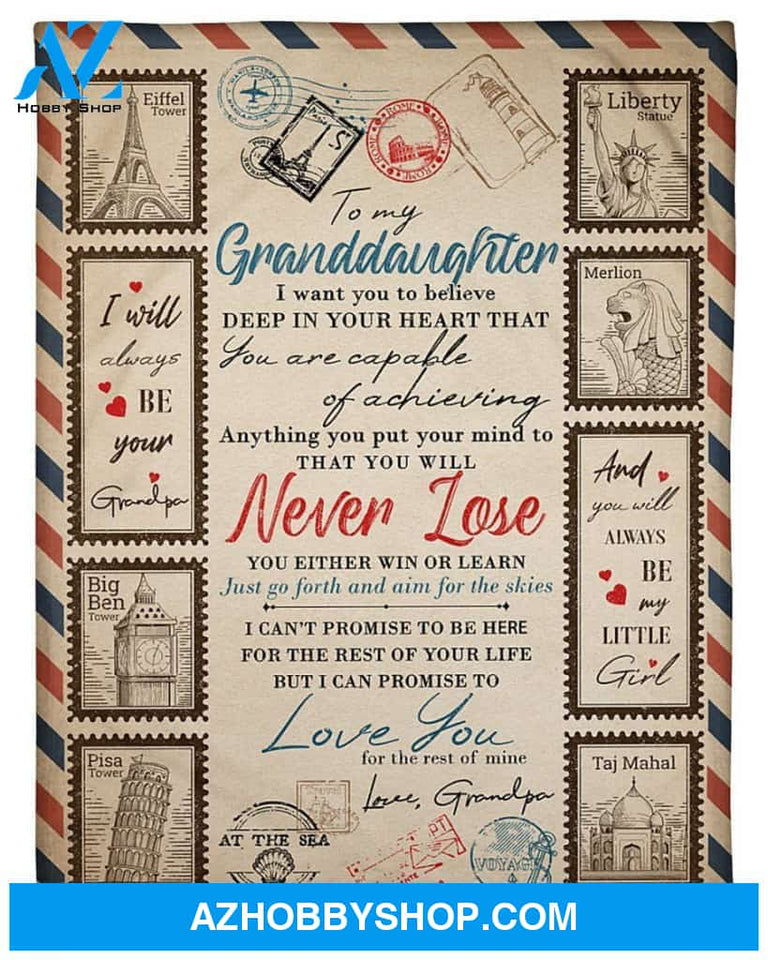 AZ
HOBBY SHOP
Eiffel
Tower
PARIS
ROME
ROME
Liberty
Statue
To my
Granddaughter
I want you to believe
DEEP IN YOUR HEART THAT
You are capable
of achieving
Anything you put your mind to
THAT YOU WILL
Never Lose
YOU EITHER WIN OR LEARN
Just go forth and aim for the skies
I CAN'T PROMISE TO BE HERE
FOR THE REST OF YOUR LIFE
BUT I CAN PROMISE TO
Love You
for the rest of mine
Love, Grandpa
I will
always
BE
your
Grandpa
Merlion
And
you will
ALWAYS
BE
my
LITTLE
Girl
Big
Ben
Tower
Pisa
Tower
Taj Mahal
AT THE SEA
PT
VOYAGE
AZHOBBYSHOP.COM